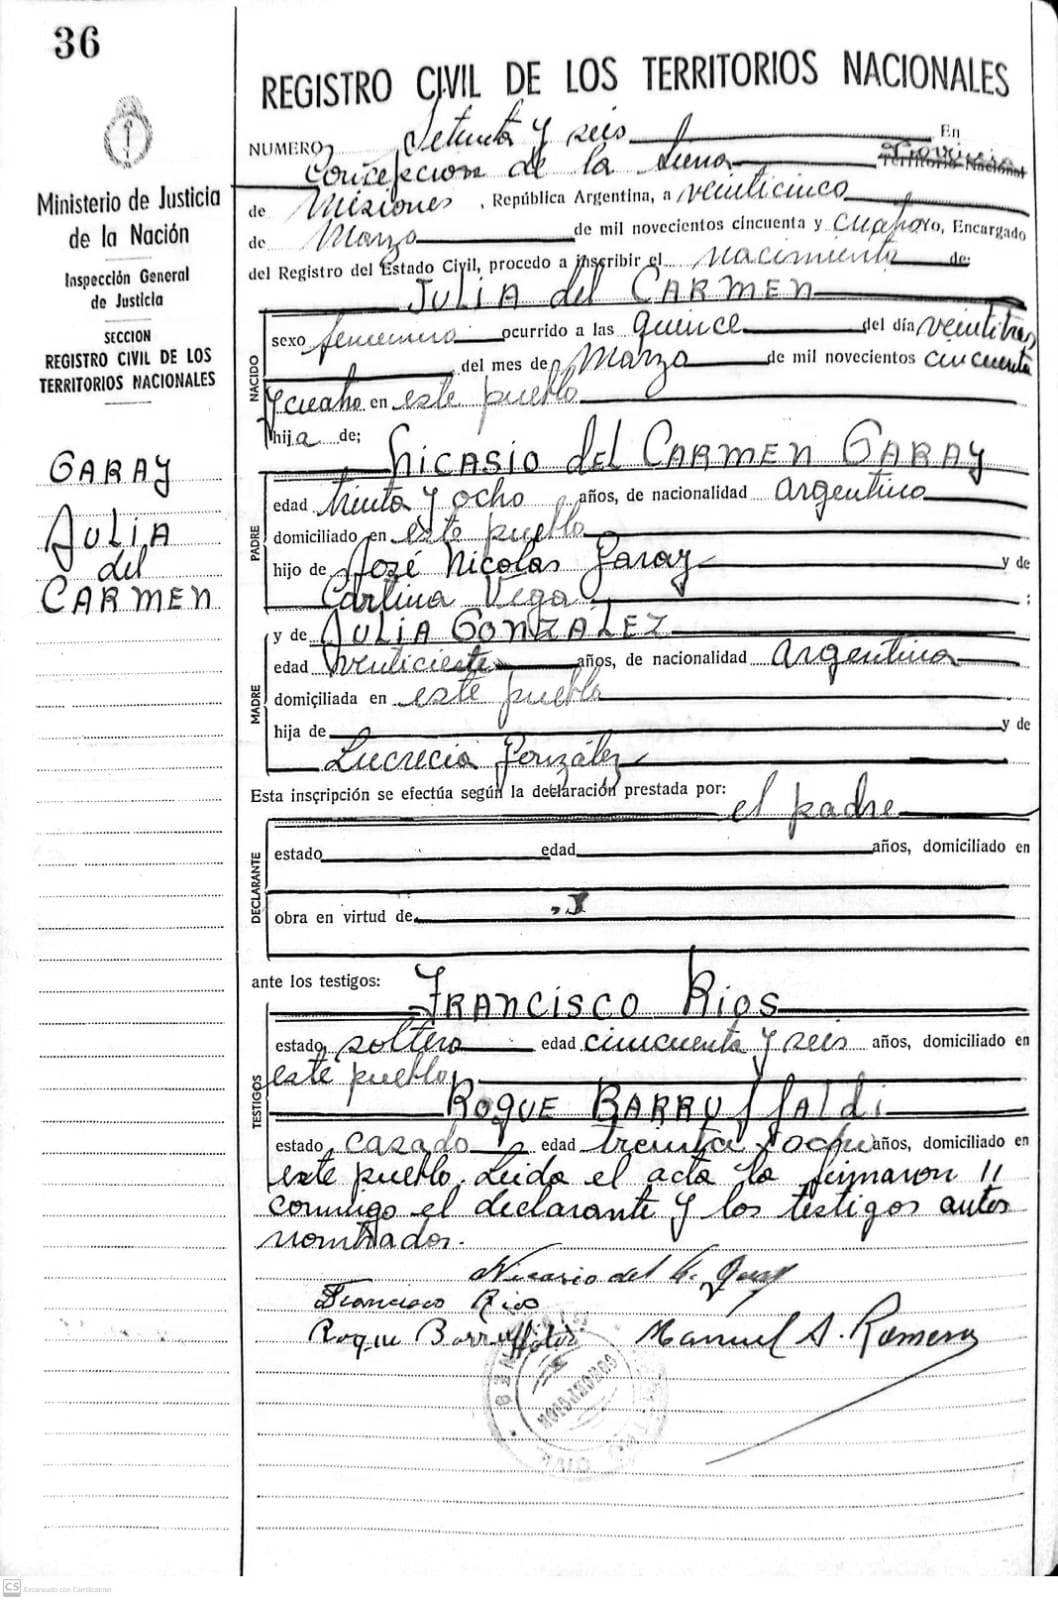 36
Ministerio de Justicia
de la Nación
Inspección General
de Justicia
SECCION
REGISTRO CIVIL DE LOS
TERRITORIOS NACIONALES
GARAY
JULIA
del
CARMEN
REGISTRO CIVIL DE LOS TERRITORIOS NACIONALES
NUMERO Setenta y seis En
Concepcion de la Sierra Territorio Nacional
de Misiones, República Argentina, a veinticinco
de Marzo de mil novecientos cincuenta y cuatro, Encargado
del Registro del Estado Civil, procedo a inscribir el nacimiento de:
JULIA del CARMEN
NACIDO
sexo femenino ocurrido a las quince del día veintitres
del mes de Marzo de mil novecientos cincuenta
y cuatro en este pueblo
hija de;
Nicasio del CARMEN GARAY
PADRE
edad treinta y ocho años, de nacionalidad argentino
domiciliado en este pueblo
hijo de José Nicolas Garay y de
Vega ;
y de JULIA GONZALEZ
MADRE
edad años, de nacionalidad argentina
domiciliada en este pueblo
hija de y de
Lucrecia González
Esta inscripción se efectúa según la declaración prestada por: el padre
DECLARANTE
estado edad años, domiciliado en
obra en virtud de
ante los testigos:
FRANCISCO Rios
TESTIGOS
estado soltero edad cincuenta y seis años, domiciliado en
este pueblo
ROQUE BARRUFFALDI
estado casado edad treinta y ocho años, domiciliado en
este pueblo. Leida el acta la firmaron //
conmigo el declarante y los testigos antes
nombrados.
Nicasio del C. Garay
Francisco Rios
Roque Barruffaldi Manuel A. Romero
CS Escaneado con CamScanner